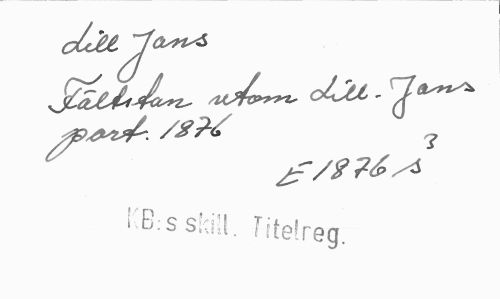 Lill Jans
Fältstan utom Lill-Jans
port. 1876
E 1876 s 3
KB:s skill. Titelreg.